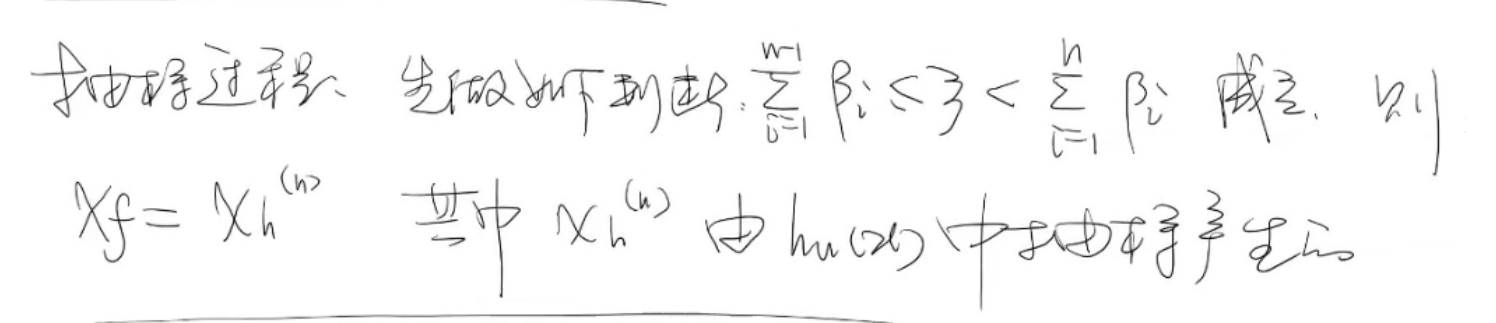 抽样过程、先做如下判断:$\sum_{i=1}^{n-1} \beta_i \leq \xi < \sum_{i=1}^{n} \beta_i$ 成立. 则
$X_f = X_h^{(n)}$ 其中 $X_h^{(n)}$ 由 $h_n(x)$ 中抽样产生的